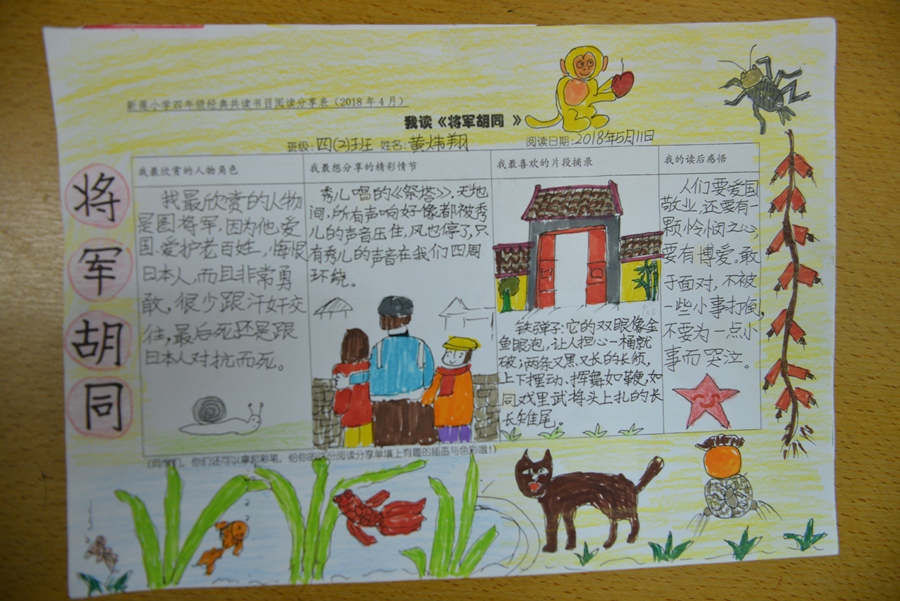 新莲小学四年级经典共读书目阅读分享表（2018年4月）
我读《将军胡同 》
班级: 四(2)班 姓名: 黄炜翔 阅读日期: 2018年5月11日
将
军
胡
同
我最欣赏的人物角色
我最欣赏的人物
是图将军,因为他,爱
国,爱护老百姓,悔恨
日本人,而且非常勇
敢,很少跟汗奸交
往,最后死还是跟
日本人对抗而死。
我最想分享的精彩情节
秀儿唱的《祭塔》,天地
间,所有声响好像都被秀
儿的声音压住,风也停了,只
有秀儿的声音在我们四周
环绕。
我最喜欢的片段摘录
铁弹子:它的双眼像金
鱼眼泡,让人担心一桶就
破;两条又黑又长的长须,
上下摆动,挥舞如鞭,如
同戏里武将头上扎的长
长雉尾。
我的读后感悟
人们要爱国
敬业,还要有一
颗怜悯之心,
要有博爱,敢
于面对,不被
一些小事打倒,
不要为一点小
事而哭泣。
(同学们，你们还可以拿起彩笔，给你的这份阅读分享单填上有趣的插画与色彩哦!)